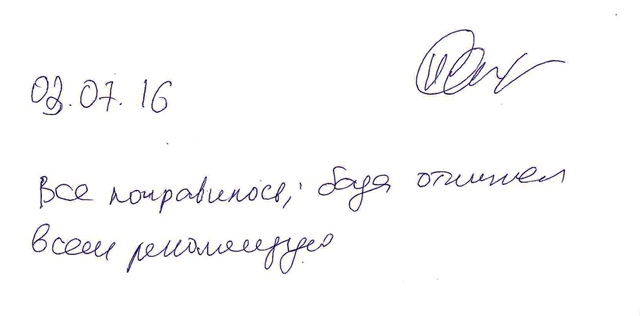 02.07.16
Все понравилось, база отличная
всем рекомендую